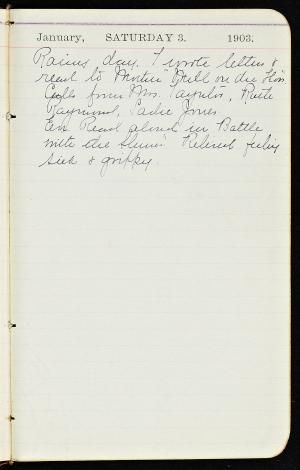 January, SATURDAY 3. 1903.
Rainy day. I wrote letters &
read to Mother. Still on
Calls from Mrs. Ruth
Raymond, Sadie Jones
Eve Read aloud in Battle
with the Slum. Retired feeling
sick & grippy.